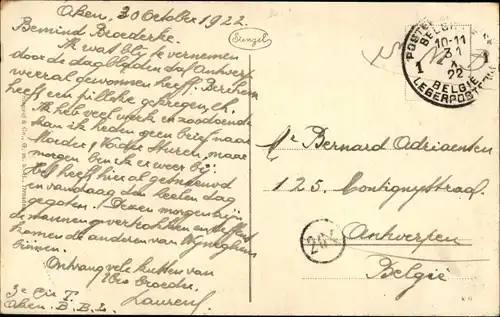 Aken, 30 October 1922.
Bemind Broederke.
Ik was blij te vernemen
door de dagbladen dat Antwerp
weeral gewonnen heeft. Berchem
heeft een pilleke gekregen, eh.
Ik heb veel werk en zoodoende
kan ik heden geen brief naar
Moeder, Vader sturen, maar
morgen ben ik er weer bij.
Het heeft hier al gesneeuwd
en vandaag den heelen dag
gegoten! Dezen morgen zijn
de mannen vertrokken en
komen de anderen van
binnen.
Ontvang vele kussen van
Uw Broeder
Laurent
3e Cie T.
Aken. B.B.L.
Stengel
POSTES
BELGIQUE
10-11
31
X
22
BELGIE
LEGERPOSTERIJ
1
Mr Bernard Adriaenten
125 Montignystraat
Antwerpen
België
204